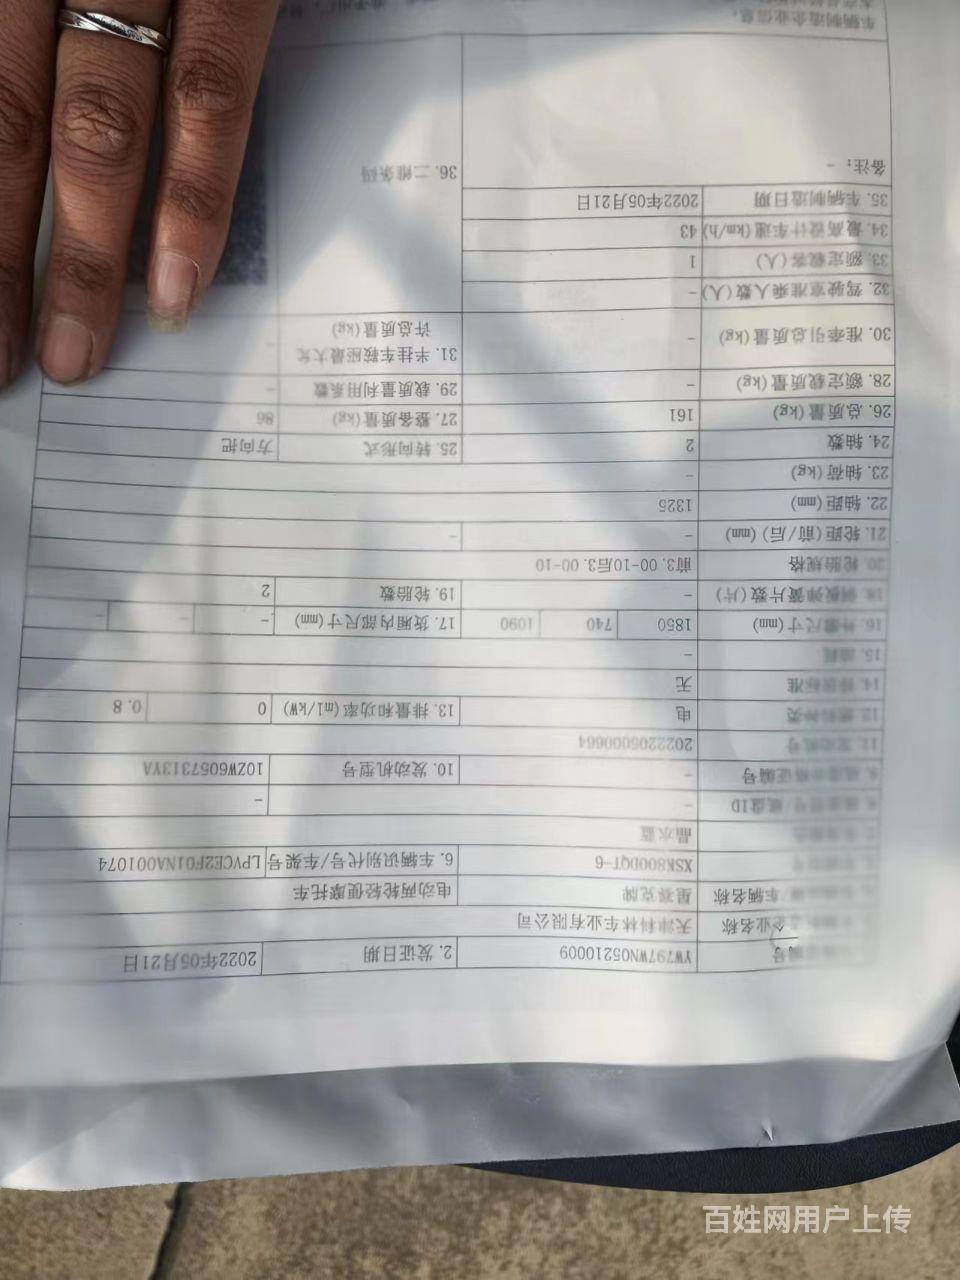 YW797WN05210009 2. 发证日期 2022年05月21日
企业名称 天津科林车业有限公司
车辆名称 星客克牌 电动两轮轻便摩托车
XSK800DQT-6 6. 车辆识别代号/车架号 LPVCE2F01NA001074
晶水蓝
底盘ID - -
- 10. 发动机型号 10ZW6057313YA
11. 发动机号 202205000664
12. 燃料种类 电 13. 排量和功率(ml/kW) 0 0.8
14. 排放标准 无
15. 油耗 -
16. 外廓尺寸(mm) 1850 740 1090 17. 货厢内部尺寸(mm) - - -
18. 钢板弹簧片数(片) - 19. 轮胎数 2
20. 轮胎规格 前3.00-10后3.00-10
21. 轮距(前/后)(mm) - -
22. 轴距(mm) 1325
23. 轴荷(kg) -
24. 轴数 2 25. 转向形式 方向把
26. 总质量(kg) 161 27. 整备质量(kg) 86
28. 额定载质量(kg) - 29. 载质量利用系数 -
30. 准牵引总质量(kg) - 31. 半挂车鞍座最大允
许总质量(kg) -
32. 驾驶室准乘人数(人) -
33. 额定载客(人) 1
34. 最高设计车速(km/h) 43
35. 车辆制造日期 2022年05月21日
备注：- 36. 二维条码
车辆制造企业信息：
百姓网用户上传